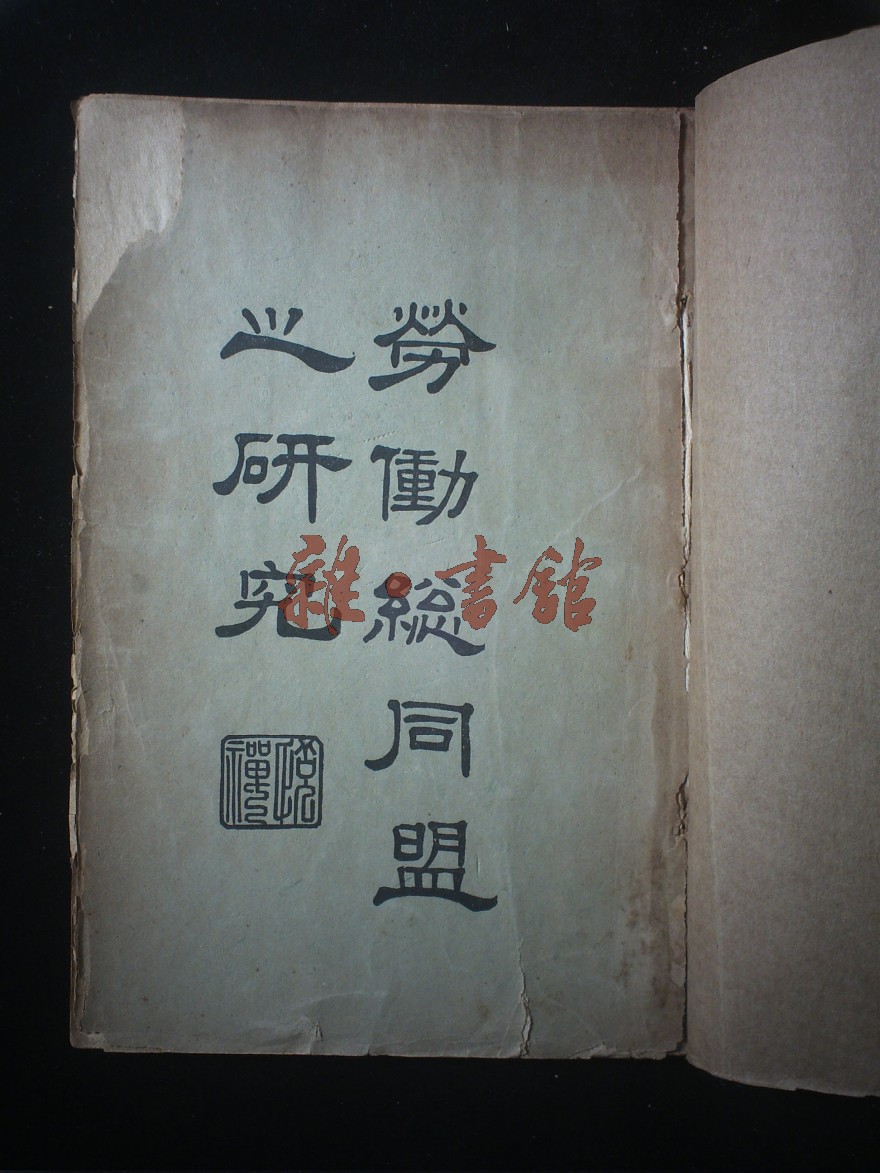 勞働総同盟
之研究
雜·書館